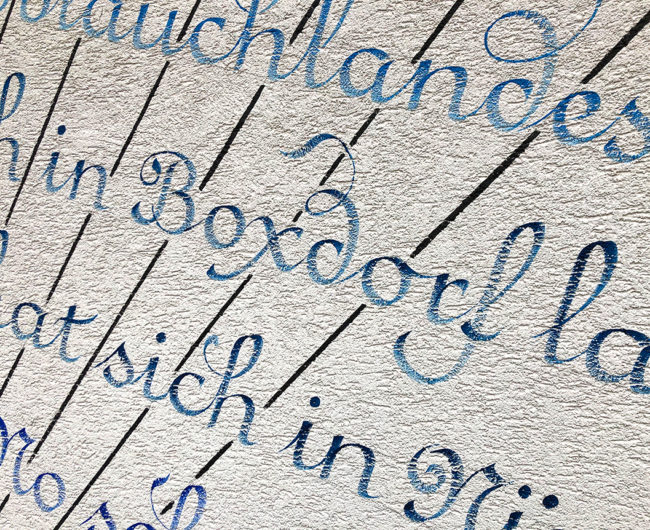 oblauchlandes
h in Boxdorf la
at sich in Nü